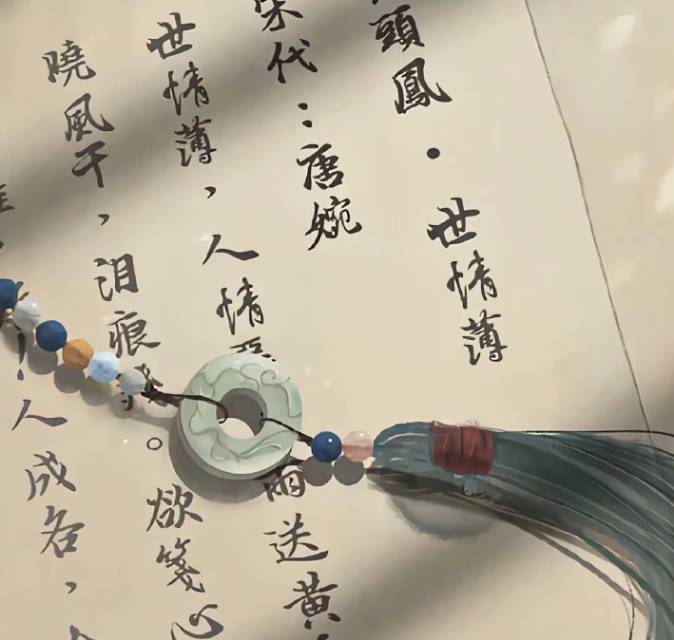 頭鳳·世情薄
宋代：唐婉
世情薄，人情雨送黃
曉風干，泪痕。欲箋心
！人成各，